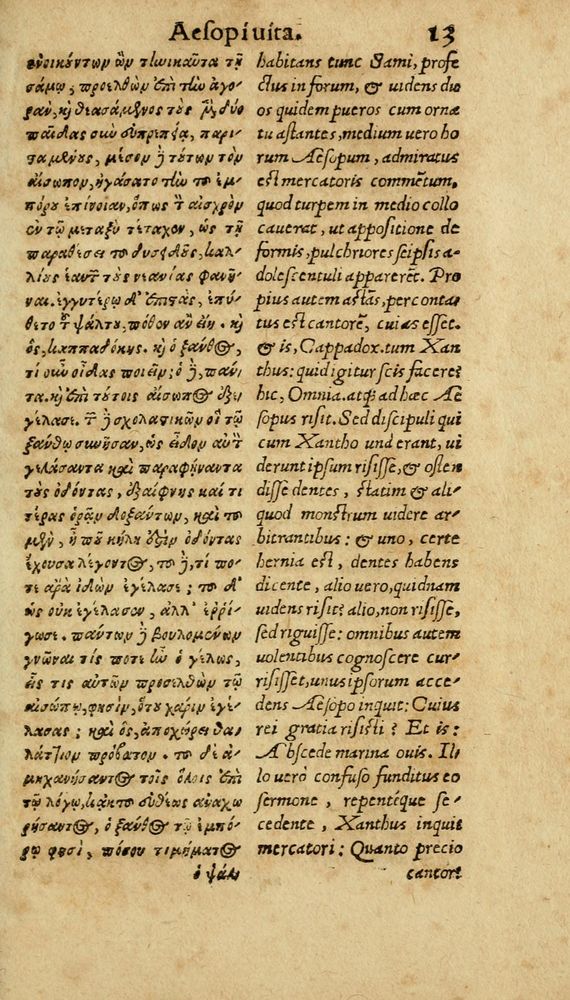 Aesopi vita. 13
ἐνοικούντων ὢν τηνικαῦτα τῇ
σάμῳ, προελθὼν ἐπὶ τὴν ἀγο-
ρὰν, καὶ θεασάμενος τοὺς μὲν δύο
παῖδας σὺν εὐπρεπείᾳ, παρι-
σταμένους, μέσον δὲ τούτων τὸν
αἴσωπον, ἠγάσατο τὴν τοῦ ἐμ-
πόρου ἐπίνοιαν, ὅπως τὸν αἰσχρὸν
ἐν τῷ μεταξὺ τέταχεν, ὡς τῇ
παραθέσει τοῦ δυσειδοῦς, καλ-
λίους ἑαυτῶν τοὺς νεανίας φανῆ-
ναι. ἐγγυτέρω δ' ἐπιστὰς, ἐπύ-
θετο τοῦ ψάλτου, πόθεν ἂν εἴη. καὶ
ὃς, καππαδόκης. καὶ ὁ ξάνθος,
τί οὖν οἶδας ποιεῖν; ὁ δὲ, πάν-
τα. καὶ ἐπὶ τούτοις αἴσωπος ἐξε-
γέλασε. τῶν δὲ σχολαστικῶν οἳ τῷ
ξάνθῳ συνῆσαν, ὡς εἶδον αὐτὸν
γελάσαντα καὶ παραφήναντα
τοὺς ὀδόντας, ἐξαίφνης καί τι
τέρας ὁρᾷν δοξάντων, καὶ τοῦ
μὲν, ἦ που κήλη ἐστὶν ὀδόντας
ἔχουσα λέγοντος, τοῦ δὲ, τί πο-
τε ἄρα ἰδὼν ἐγέλασε; τοῦ δ'
ὡς οὐκ ἐγέλασεν, ἀλλ' ἐρρί-
γωσε. πάντων δὲ βουλομένων
γνῶναι τίς ποτε ἦν ὁ γέλως,
εἷς τις αὐτῶν προσελθὼν τῷ
αἰσώπῳ, φησὶν, ὅτου χάριν ἐγέ-
λασας; καὶ ὃς, ἀποχώρει θα-
λάττιον πρόβατον. τοῦ δὲ ἀ-
μηχανήσαντος τοῖς ὅλοις ἐπὶ
τῷ λόγῳ, κἀκ τοῦ εὐθέως ἀναχω
ρήσαντος, ὁ ξάνθος τῷ ἐμπό-
ρῳ φησὶ, πόσου τιμήματος
ὁ ψάλ
habitans tunc Sami, profe
ctus in forum, & uidens duo
os quidem pueros cum orna
tu astantes, medium uero ho
rum Aesopum, admiratus
est mercatoris commētum,
quod turpem in medio collo
cauerat, ut appositione de
formis, pulchriores seipsis a-
dolescentuli apparerēt. Pro
pius autem astās, percontа-
tus est cantorē, cuias esset.
& is, Cappadox. tum Xan
thus: quid igitur scis facere?
hic, Omnia. atq; ad hæc Ae
sopus risit. Sed discipuli qui
cum Xantho und erant, ui
derunt ipsum risisse, & osten
disse dentes, statim & ali-
quod monstrum uidere ar-
bitrantibus: & uno, certe
hernia est, dentes habens
dicente, alio uero, quidnam
uidens risit? alio, non risisse,
sed riguisse: omnibus autem
uolentibus cognoscere cur
risisset, unus ipsorum acce-
dens Aesopo inquit: Cuius
rei gratia risisti? Et is:
Abscede marina ouis. Il-
lo uerò confuso funditus eo
sermone, repentéque se-
cedente, Xanthus inquit
mercatori: Quanto precio
cantor?